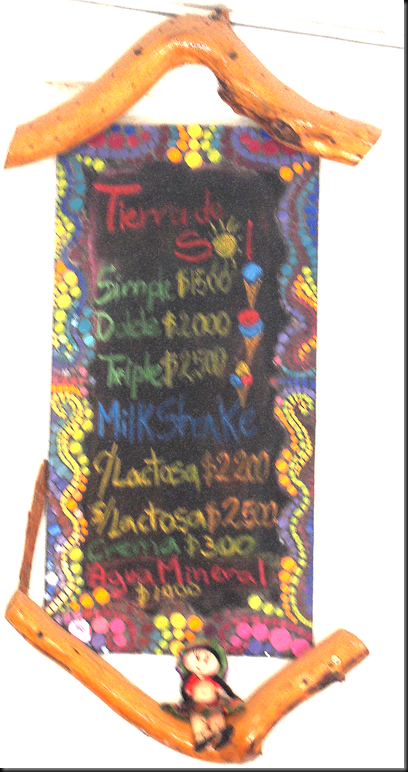 Tierra de
Sol
Simple $1500
Doble $2000
Triple $2500
MilkShake
c/Lactosa $2200
s/Lactosa $2500
Crema $300
Agua Mineral